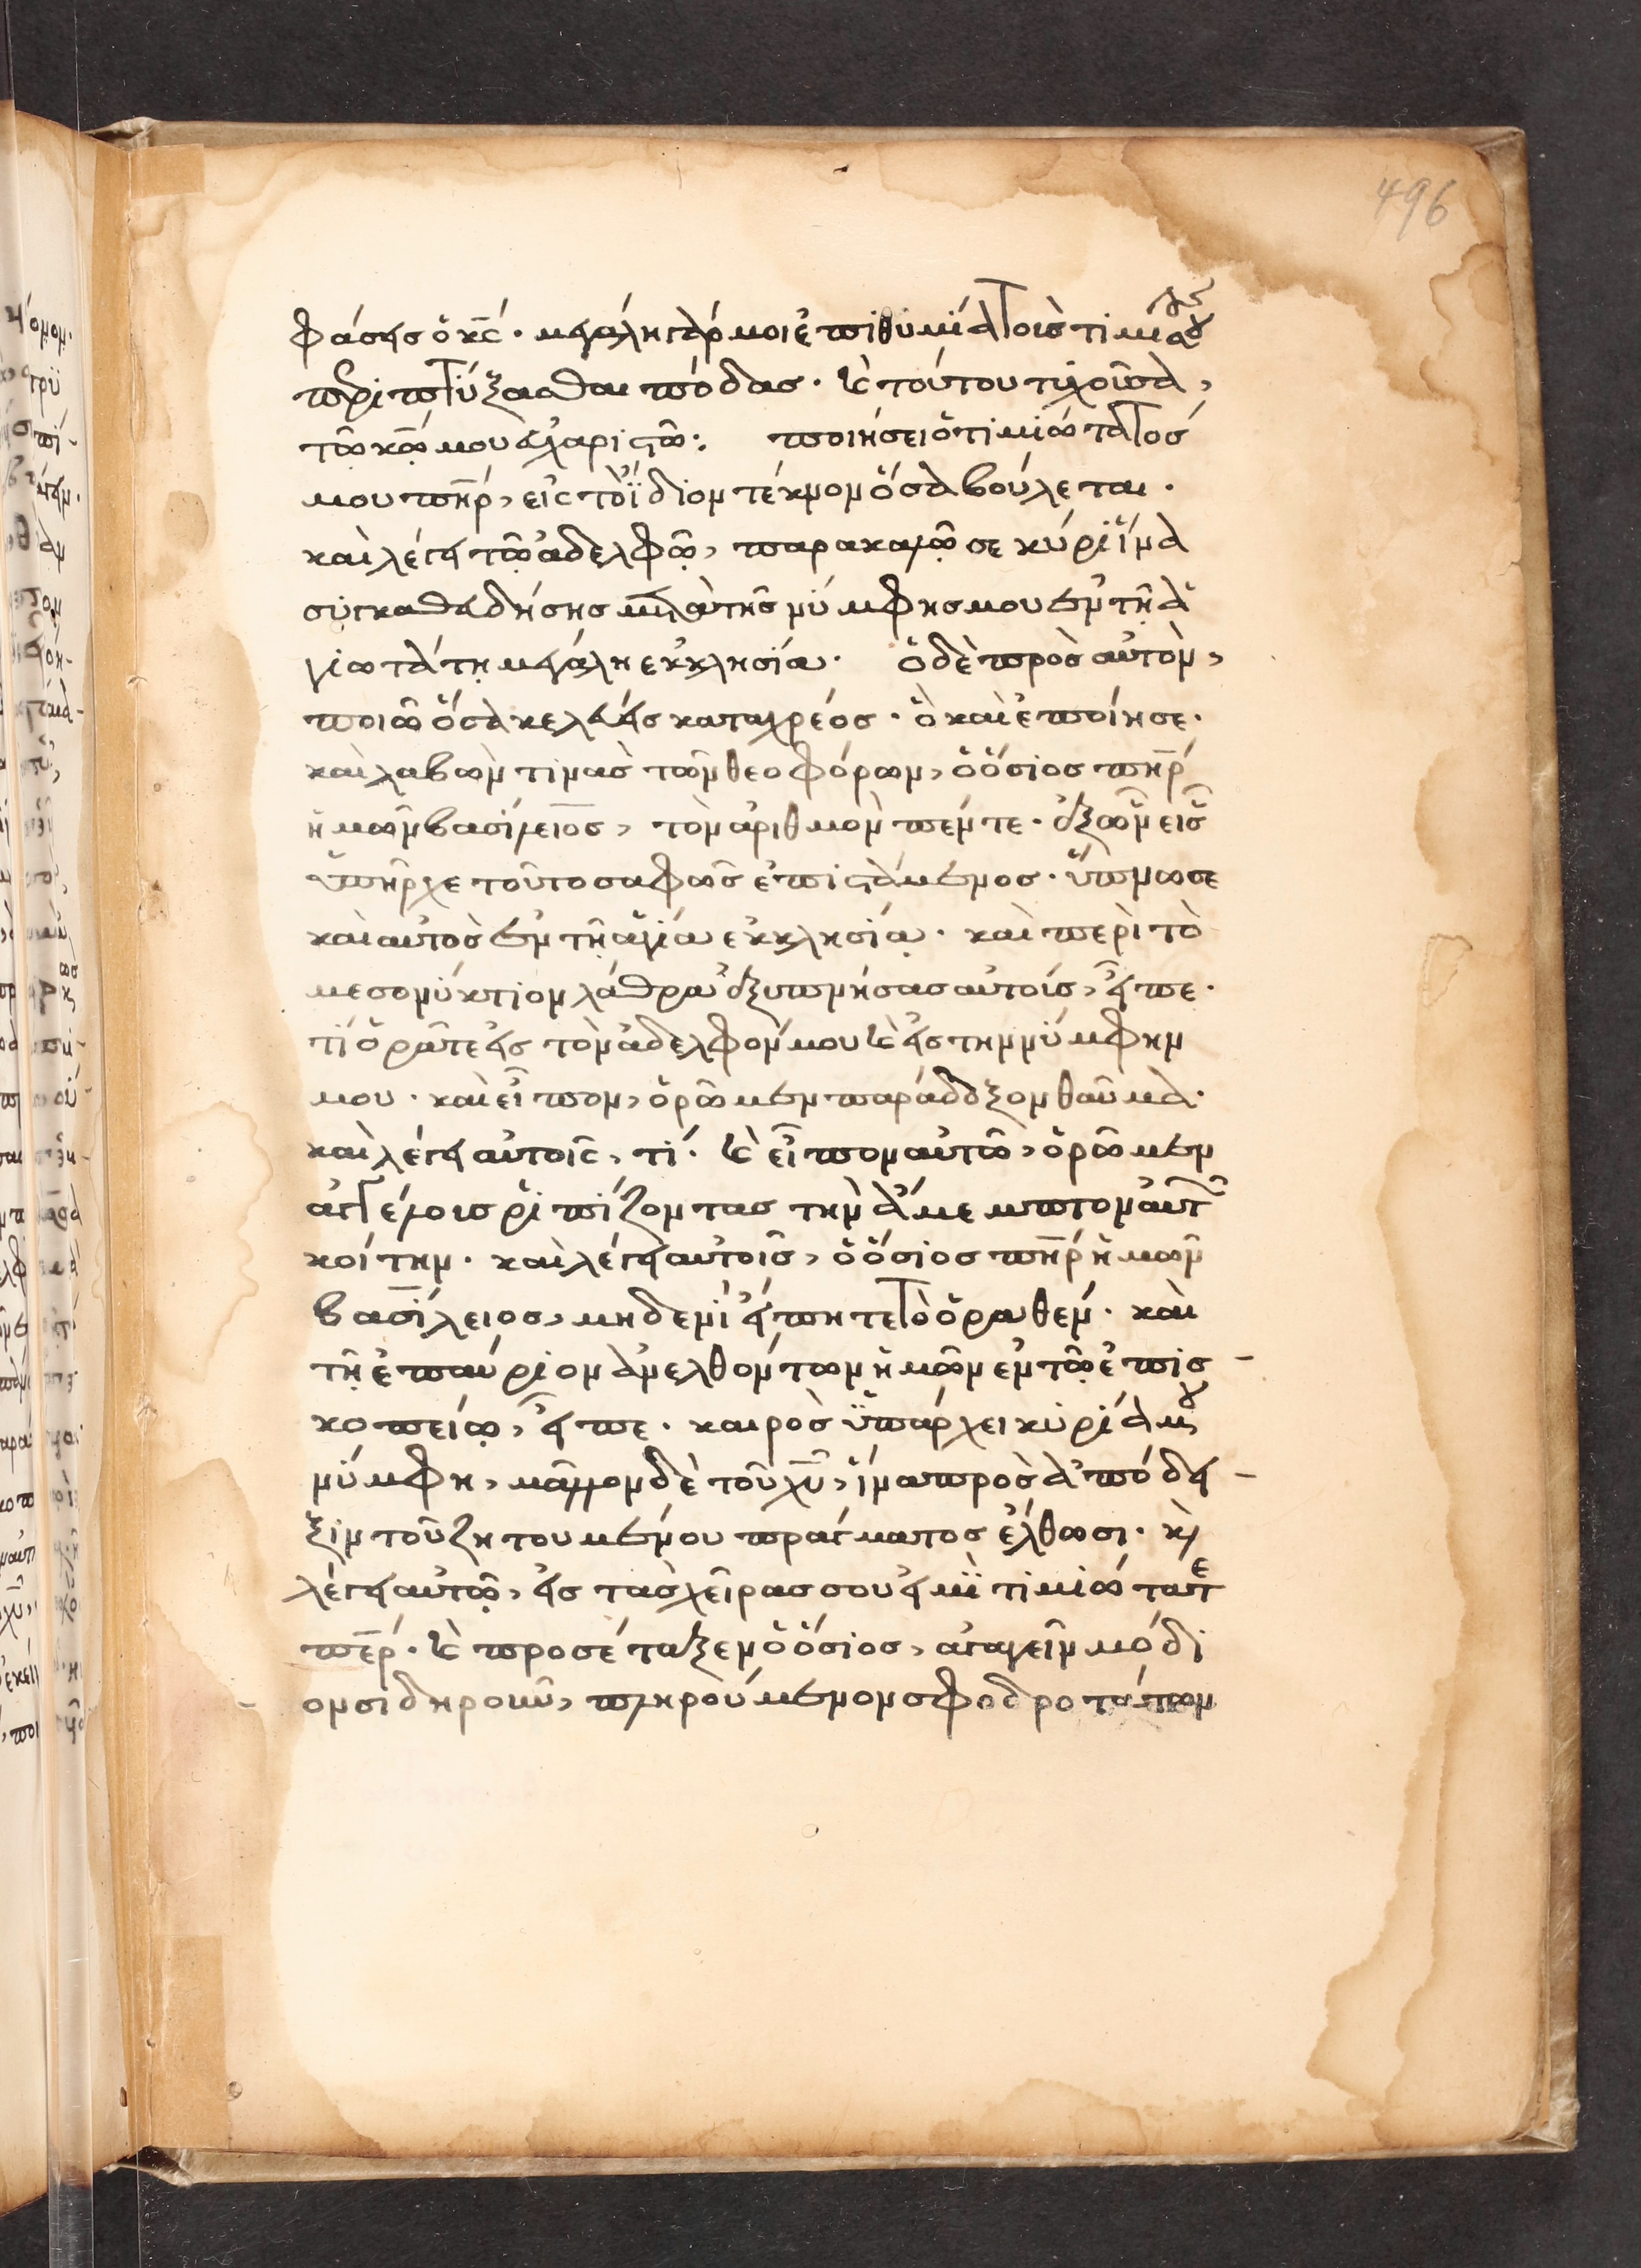 496
φάσεις ὁ κς. μεγάλη γάρ μοι ἐπιθυμία τοὺς τιμίους
περιπτύξασθαι πόδας. καὶ τούτου τυχοῦσα,
τῶ κῶ μου εὐχαριστῶ: ποιήσει ὁ τιμιώτατός
μου πηρ, εἰς τὸ ἴδιον τέκνον ὅσα βούλεται.
καὶ λέγει τῶ ἀδελφῶ, παρακαλῶ σε κύρι ἵνα
συγκαθευδήσης μετὰ τῆς νύμφης μου ἐν τῆ ἁ
γιωτάτη μεγάλη ἐκκλησία. ὁ δὲ πρὸς αὐτὸν,
ποιῶ ὅσα κελεύεις καταχρέος. ὃ καὶ ἐποίησε.
καὶ λαβὼν τινας τῶν θεοφόρων, ὁ ὅσιος πηρ
ἡμῶν βασίλειος, τὸν ἀριθμὸν πέντε. ἐξ ὧν εἷς
ὑπῆρχε τοῦτο σαφῶς ἐπιστάμενος. ὕπνωσε
καὶ αὐτὸς ἐν τῆ ἁγία ἐκκλησία. καὶ περὶ τὸ
μεσονύκτιον λάθρα ἐξυπνήσας αὐτοὺς, εἶπε.
τί ὁρᾶτε εἰς τὸν ἀδελφόν μου καὶ εἰς την νύμφην
μου. καὶ εἶπον, ὁρῶμεν παράδοξον θαῦμα.
καὶ λέγει αὐτοῖς, τί. καὶ εἶπον αὐτῶ, ὁρῶμεν
ἀγγέλους ῥιπίζοντας τὴν ἄμεμπτον αὐτῶν
κοίτην. καὶ λέγει αὐτοῖς, ὁ ὅσιος πηρ ἡμῶν
βασίλειος, μηδενὶ εἴπητε τὸ ὁραθέν. καὶ
τῆ ἐπαύριον ἀνελθόντων ἡμῶν ἐν τῶ ἐπισ-
κοπείω, εἶπε. καιρὸς ὑπάρχει κυρία μου
νύμφη, μᾶλλον δὲ τοῦ χυ, ἵνα πρὸς ἀπόδει-
ξιν τοῦ ζητουμένου πράγματος ἔλθωσι. καὶ
λέγει αὐτῶ, εἰς τὰς χεῖρας σου εἰμὶ τιμιώτατε
περ. καὶ προσέταξεν ὁ ὅσιος, ἀγαγεῖν μόδι
ον σιδηροῦν, πληρούμενον σφοδροτάτων